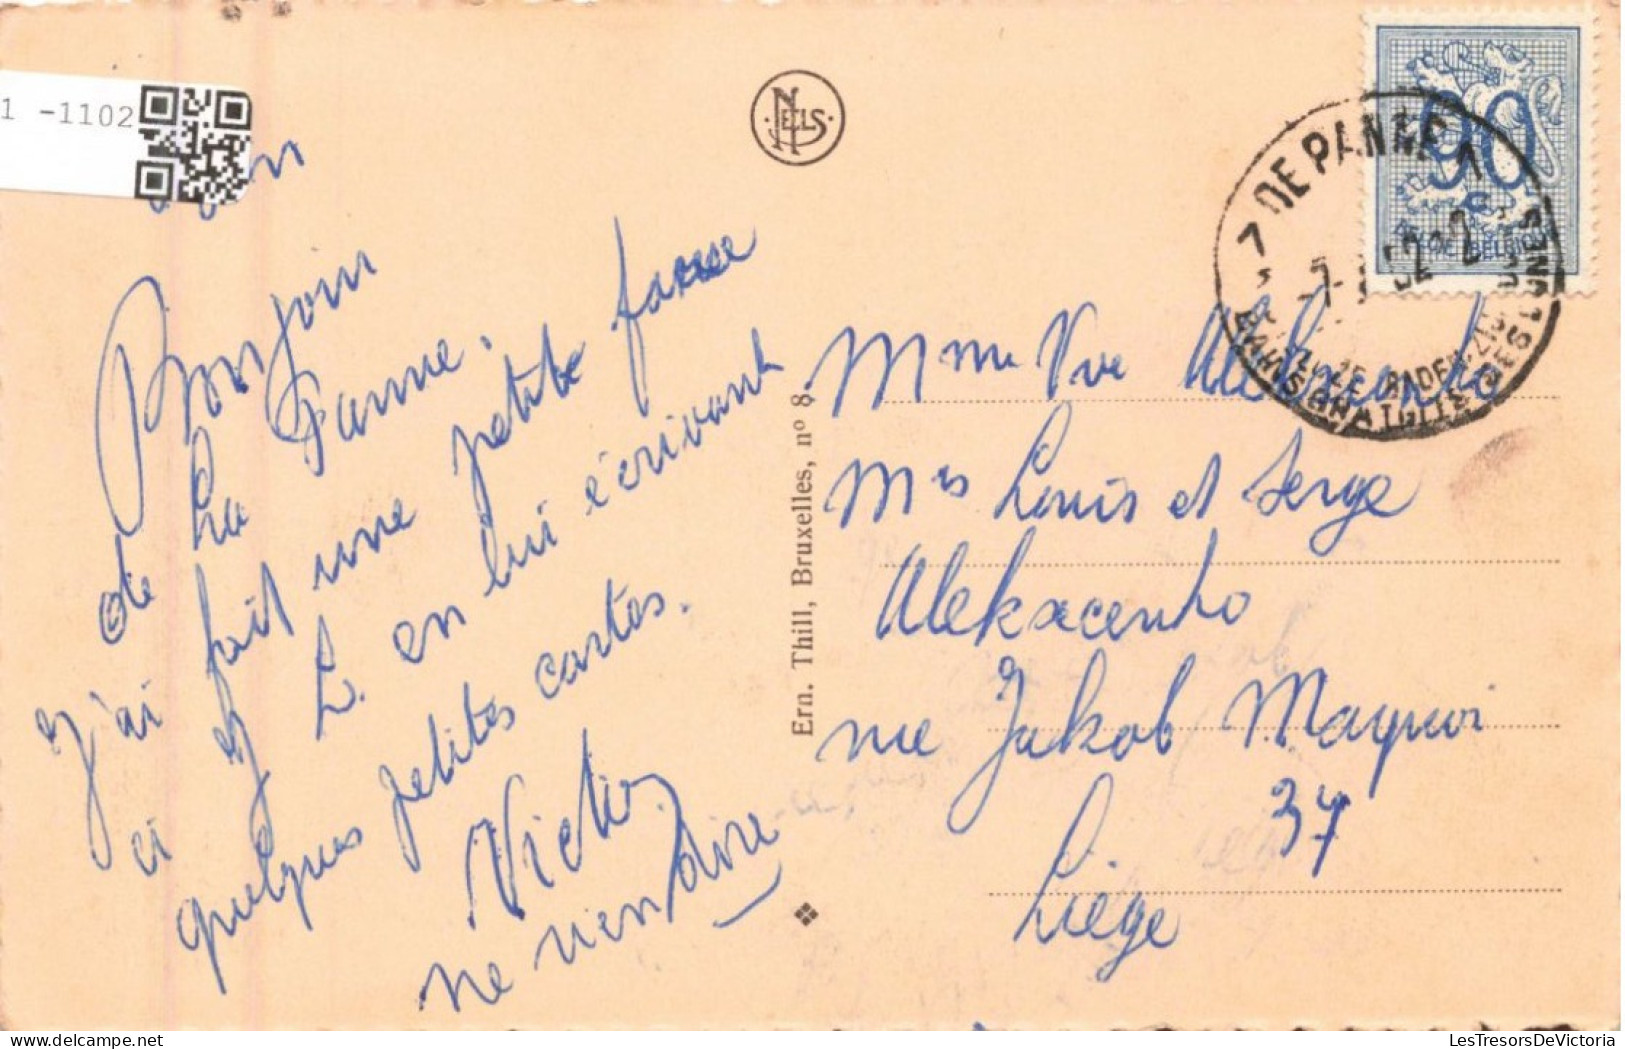 1 -1102
NELS
Bonjour
de La Panne.
J'ai fait une petite farce
ci et L. en lui écrivant
quelques petites cartes.
Victor
ne rien dire
Ern. Thill, Bruxelles, nº 8.
DE PANNE
1
90
BELGIE-BELGIQUE
Mme Vve
Mrs Louis et Serge
rue Jakob Maquoi
37
Liège
LesTresorsDeVictoria